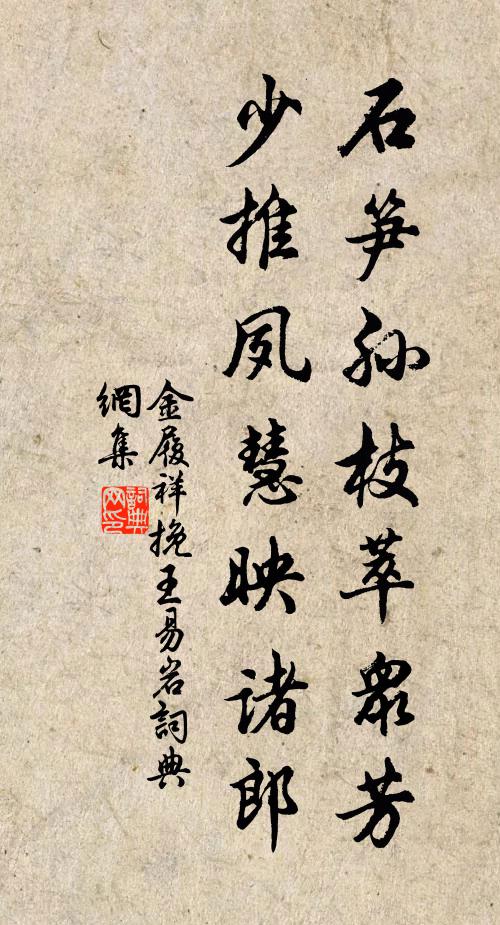 石笋孙枝萃眾芳
少推夙慧映诸郎
金履祥挽王易岩詞典
網集
詞典
网印